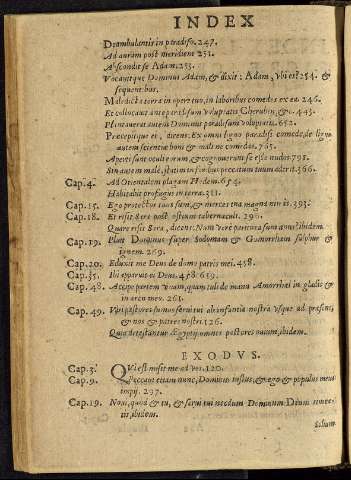 INDEX
Deambulantis in paradiso. 247.
Ad auram post meridiem 251.
Abscondit se Adam. 253.
Vocavitque Dominus Adam, & dixit: Adam, vbi es? 254. &
sequentibus.
Maledicta terra in opere tuo, in laboribus comedes ex ea 246.
Et collocavit ante paradisum voluptatis Cherubin, & c. 443.
Plantaverat autem Dominus paradisum voluptatis. 652.
Præcepitque ei, dicens: Ex omni ligno paradisi comede, de ligno
autem scientiæ boni & mali ne comedas. 765.
Aperti sunt oculi & cognoverunt se esse nudos. 791.
Sin autem male, statim in foribus peccatum tuum aderit. 366.
Cap. 4. Ad Orientalem plagam Hedem. 654.
Habitabit profugus in terra. 311.
Cap. 15. Ego protector tuus sum, & merces tua magna nimis. 393.
Cap. 18. Et risit Sara post ostium tabernaculi. 296.
Quare risit Sara, dicens: Num vere paritura sum anus? ibidem.
Cap. 19. Pluit Dominus super Sodomam & Gomorrham sulphur &
ignem. 269.
Cap. 20. Eduxit me Deus de domo patris mei. 458.
Cap. 35. Ibi apparuit ei Deus. 458. 659.
Cap. 48. Accipe partem vnam, quam tuli de manu Amorrhæi in gladio &
in arcu meo. 261.
Cap. 49. Viri pastores sumus servi tui ab infantia nostra vsque ad præsens,
& nos & patres nostri. 126.
Quia detestantur Ægyptij omnes pastores ovium, ibidem.
EXODVS.
Cap. 3. QVi est misit me ad vos. 120.
Cap. 9. Peccavi etiam nunc, Dominus iustus, & ego & populus meus
impij. 297.
Cap. 19. Novi, quod & tu, & servi tui necdum Dominum Deum timea-
tis, ibidem.